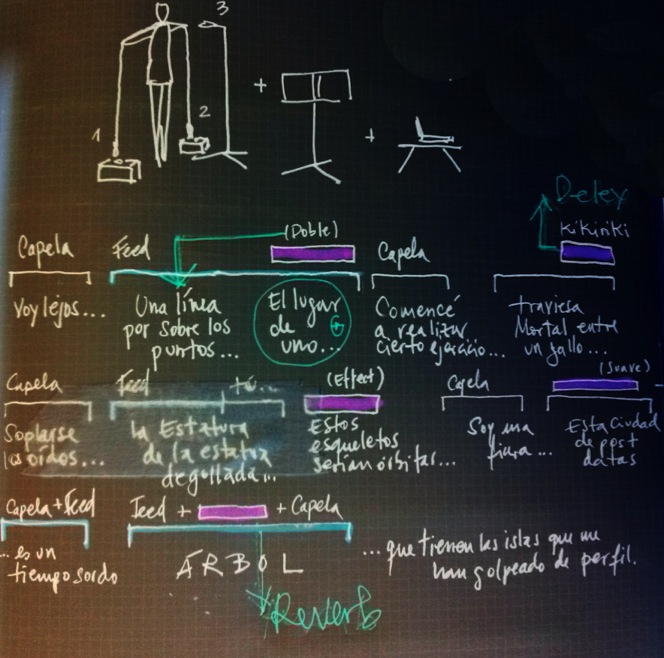 3
2
1
+
+
Delay
(Doble)
Kikiriki
Capela Feed Capela
Voy lejos... Una línea El lugar Comencé traviesa
por sobre los de a realizar Mortal entre
puntos... uno... cierto ejercicio... un gallo...
Capela Feed tú... (Effect) Capela (Suave)
Soplarse la Estatura Estos Soy una Esta Ciudad
los oídos... de la estatua esqueletos fiera... de post
degollada... serían órbitas... datas
Capela + Feed Feed + + Capela
... es un ÁRBOL ...que tienen las islas que me
tiempo sordo han golpeado de perfil.
Reverb